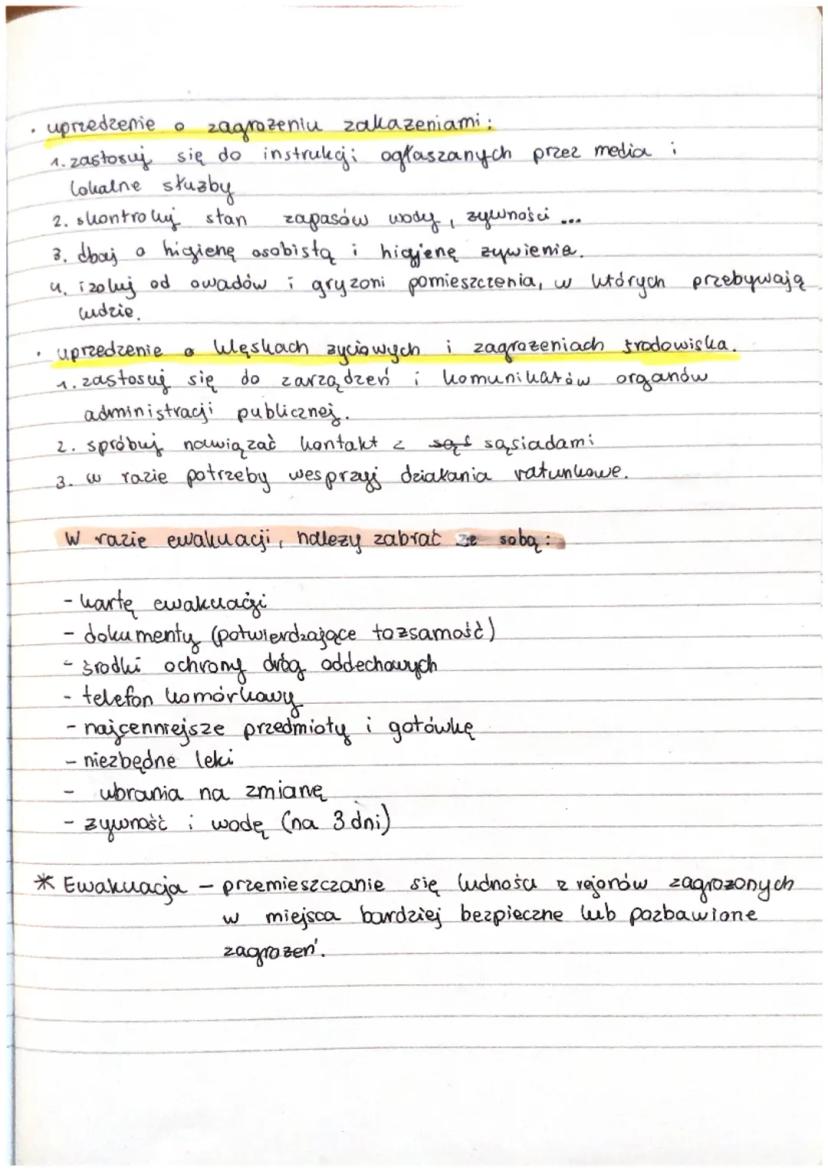 · uprzedzenie o zagrożeniu zakażeniami:
1. zastosuj się do instrukcji ogłaszanych przez media i
lokalne służby
2. skontroluj stan zapasów wody, żywności ...
3. dbaj o higienę osobistą i higienę żywienia.
4. izoluj od owadów i gryzoni pomieszczenia, w których przebywają
ludzie.
· uprzedzenie o klęskach życiowych i zagrożeniach środowiska.
1. zastosuj się do zarządzeń i komunikatów organów
administracji publicznej.
2. spróbuj nawiązać kontakt z sąsiadami
3. w razie potrzeby wesprzyj działania ratunkowe.
W razie ewakuacji, należy zabrać ze sobą:
- kartę ewakuacji
- dokumenty (potwierdzające tożsamość)
- środki ochrony dróg oddechowych
- telefon komórkowy
- najcenniejsze przedmioty i gotówkę
- niezbędne leki
- ubrania na zmianę
- żywność i wodę (na 3 dni)
* Ewakuacja – przemieszczanie się ludności z rejonów zagrożonych
w miejsca bardziej bezpieczne lub pozbawione
zagrożeń.